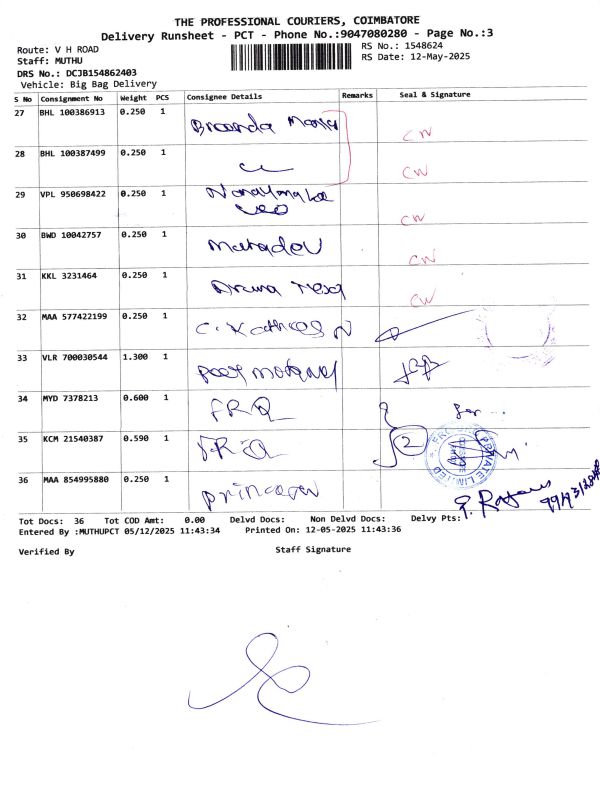 THE PROFESSIONAL COURIERS, COIMBATORE
Delivery Runsheet - PCT - Phone No.:9047080280 - Page No.:3
Route: V H ROAD
RS No.: 1548624
Staff: MUTHU
RS Date: 12-May-2025
DRS No.: DCJB154862403
Vehicle: Big Bag Delivery
S No Consignment No Weight PCS Consignee Details Remarks Seal & Signature
27 BHL 100386913 0.250 1 CW
28 BHL 100387499 0.250 1 CW
29 VPL 950698422 0.250 1 CW
30 BWD 10042757 0.250 1 Mahadev CW
31 KKL 3231464 0.250 1 CW
32 MAA 577422199 0.250 1
33 VLR 700030544 1.300 1
34 MYD 7378213 0.600 1 FRQ
35 KCM 21540387 0.590 1 2
PRIVATE LIMITED
36 MAA 854995880 0.250 1
Tot Docs: 36 Tot COD Amt: 0.00 Delvd Docs: Non Delvd Docs: Delvy Pts:
Entered By :MUTHUPCT 05/12/2025 11:43:34 Printed On: 12-05-2025 11:43:36
Verified By Staff Signature